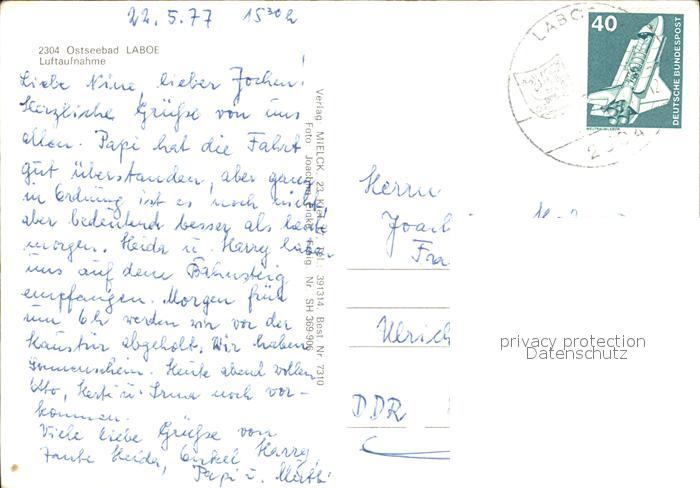 22.5.77 15³⁰h
2304 Ostseebad LABOE
Luftaufnahme
Liebe Nine, lieber Jochen!
Herzliche Grüße von uns
allen. Papi hat die Fahrt
gut überstanden, aber ganz
in Ordnung ist es noch nicht,
aber bedeutend besser als heute
morgen. Heida u. Harry haben
uns auf dem Bahnsteig
empfangen. Morgen früh
um 6h werden wir vor der
Haustür abgeholt. Wir haben
Sonnenschein. Heute abend wollen
Otto, Herti u. Irma noch vor-
kommen.
Viele liebe Grüße von
Tante Heida, Onkel Harry,
Papi u. Mutti
Verlag MIELCK, 23 Tel.: 391314 Best. Nr. 7310
Foto Joachim Nr. SH 369-906
LABOE
2304
40
DEUTSCHE BUNDESPOST
WELTRAUMLABOR
Herrn
Joach
Fra
Ulrich
DDR
privacy protection
Datenschutz